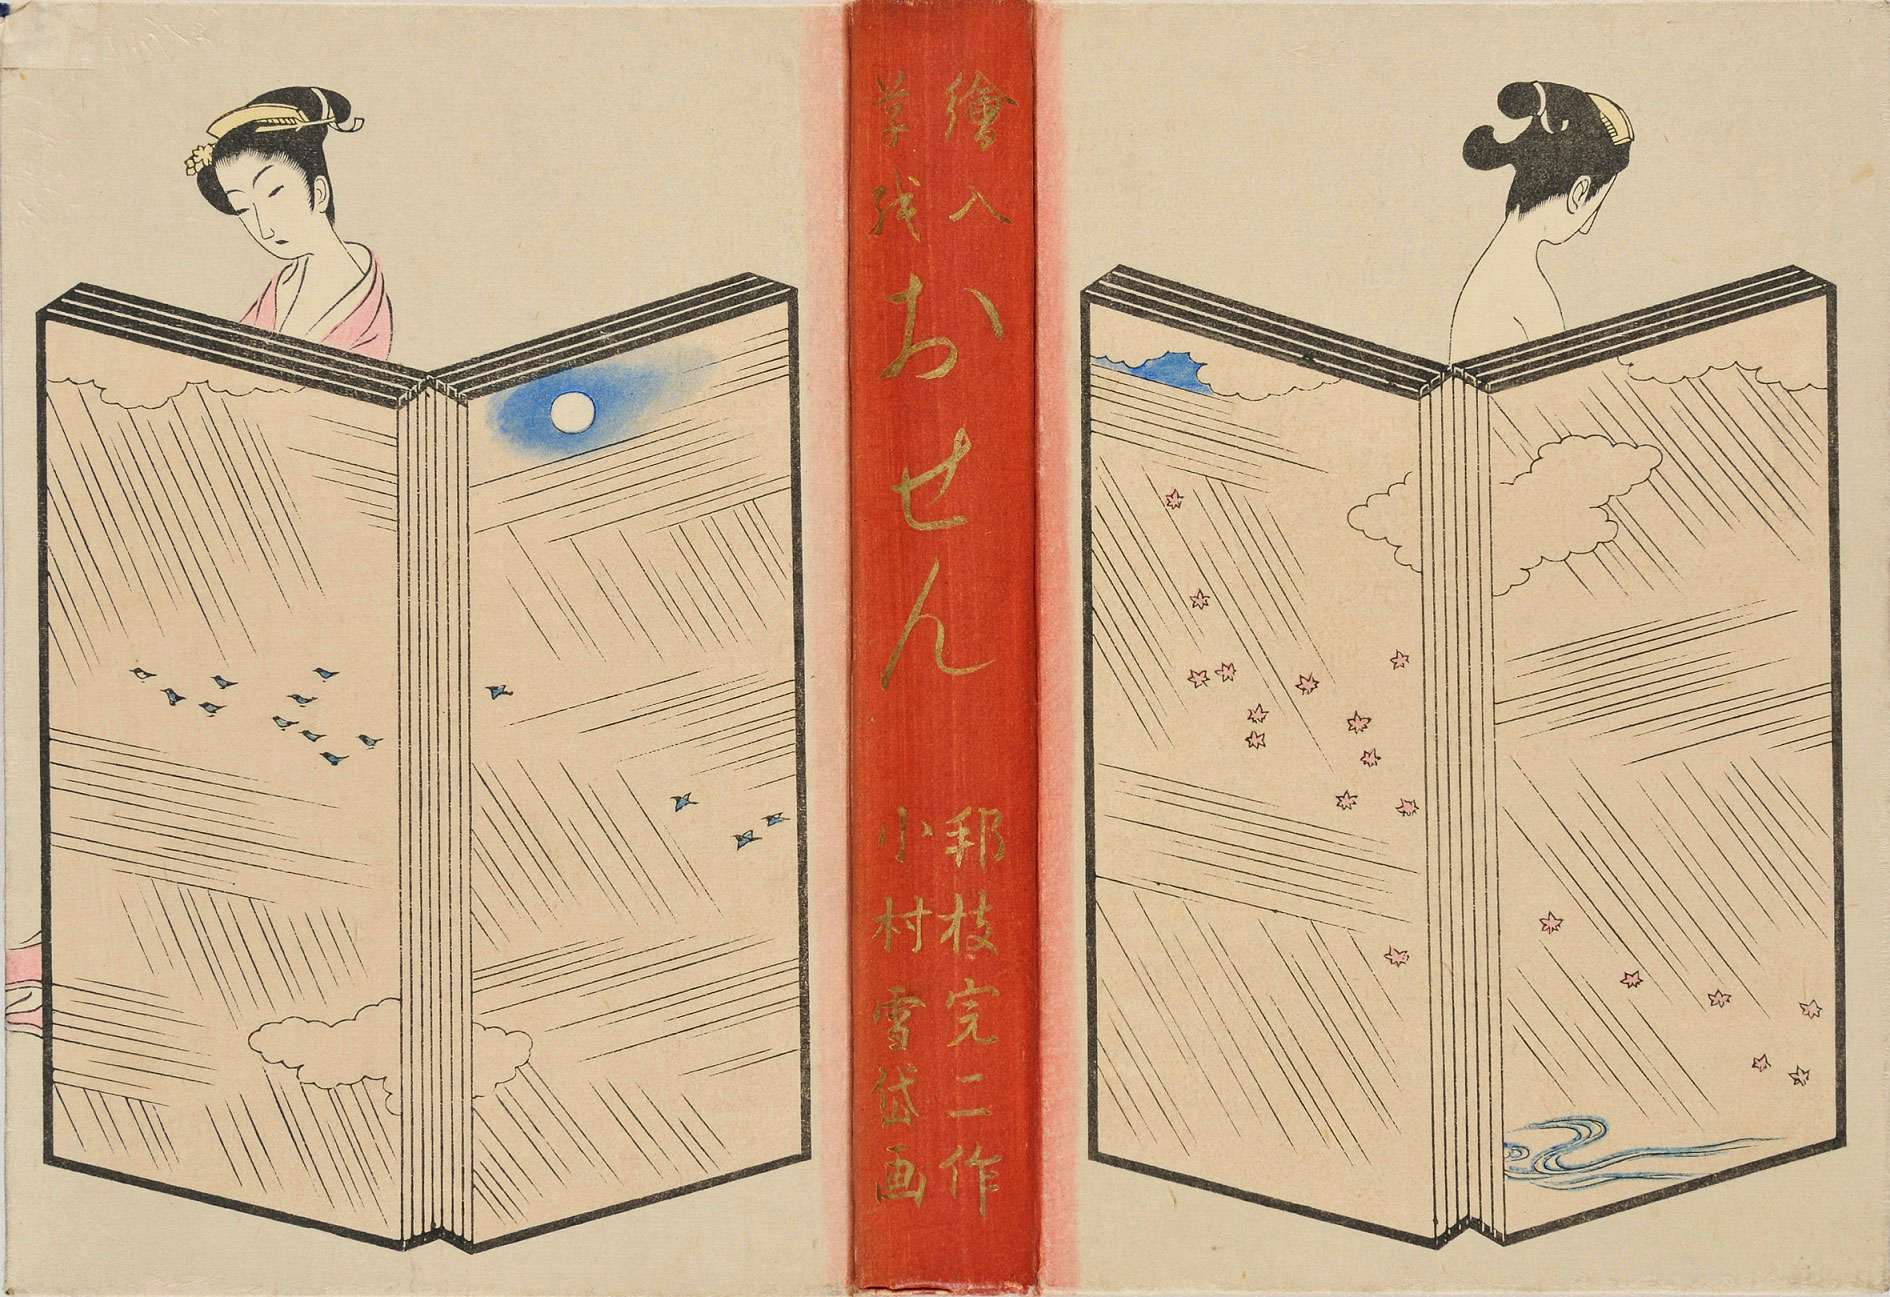 繪入
草紙
おせん
邦枝完二作
小村雪岱画